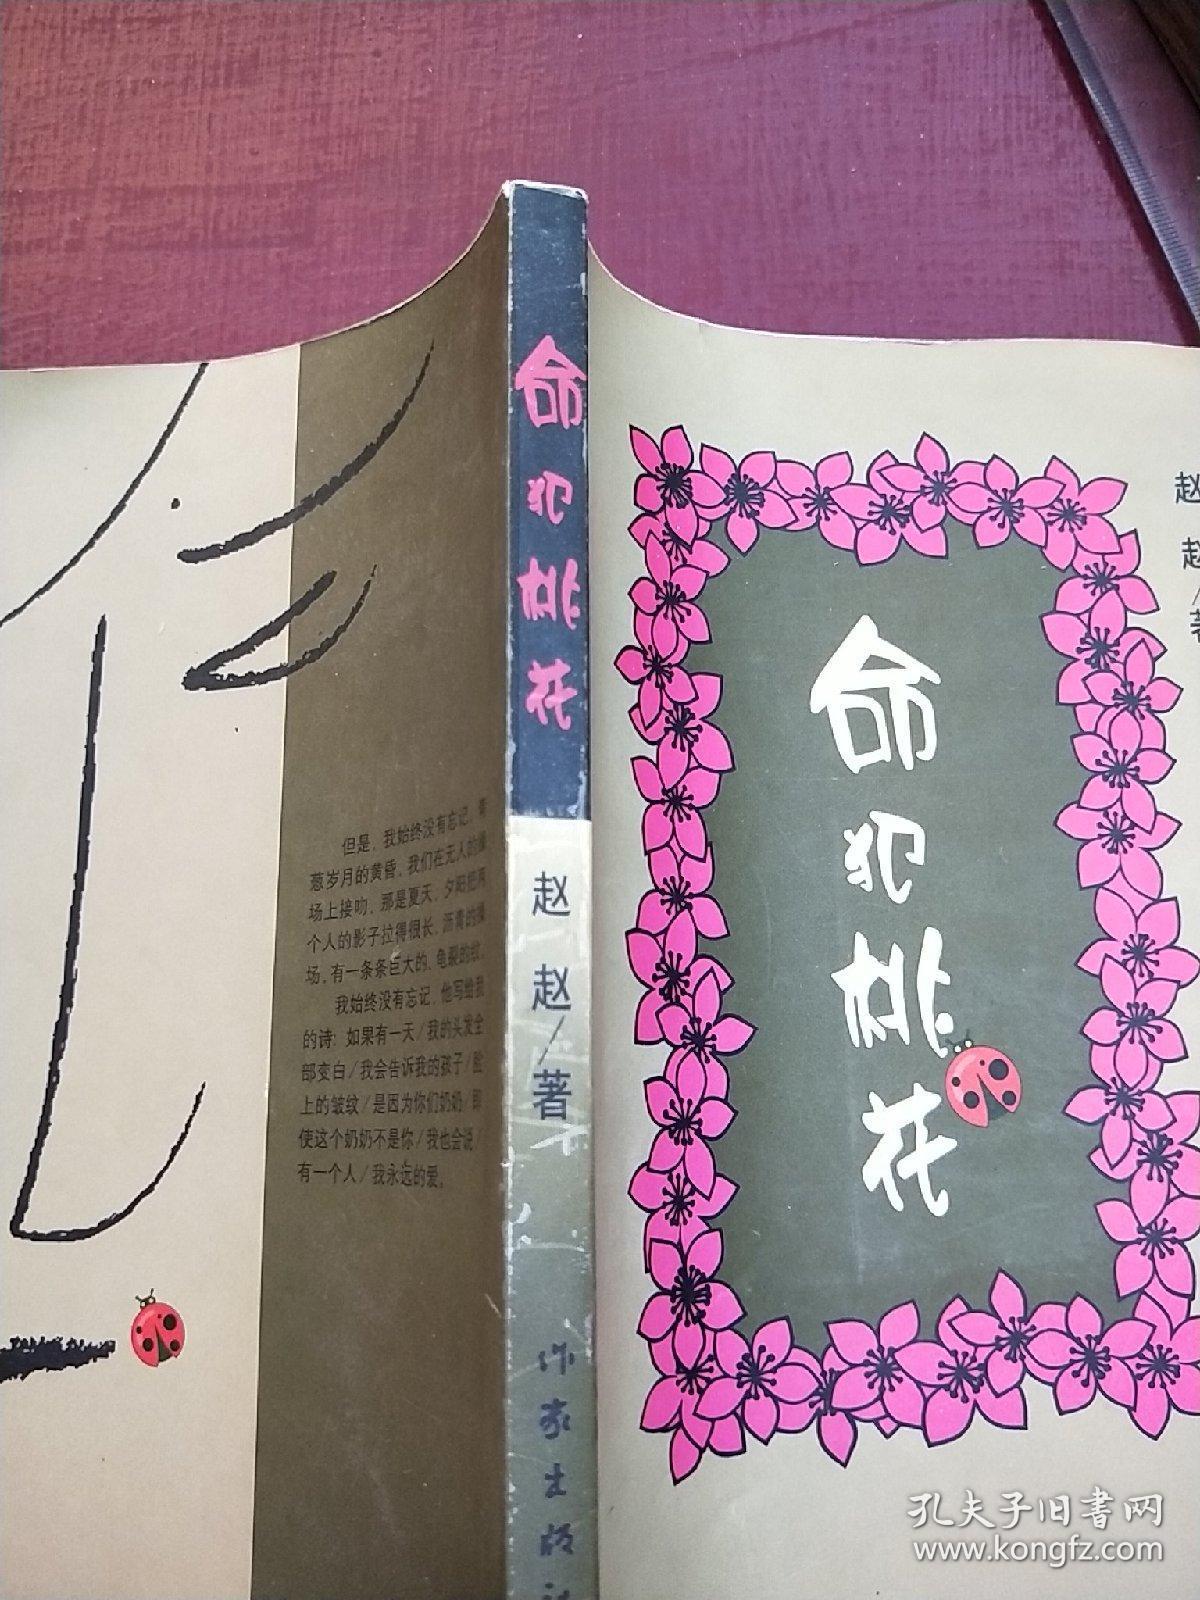 命犯桃花
赵赵/著
作家出版
但是，我始终没有忘记，青
葱岁月的黄昏，我们在无人的操
场上接吻，那是夏天，夕阳把两
个人的影子拉得很长，沥青的操
场，有一条条巨大的、龟裂的纹。
我始终没有忘记，他写给我
的诗：如果有一天/我的头发全
部变白/我会告诉我的孩子/脸
上的皱纹/是因为你们奶奶/即
使这个奶奶不是你/我也会说/
有一个人/我永远的爱。
命犯桃花
赵赵/著
孔夫子旧书网
www.kongfz.com